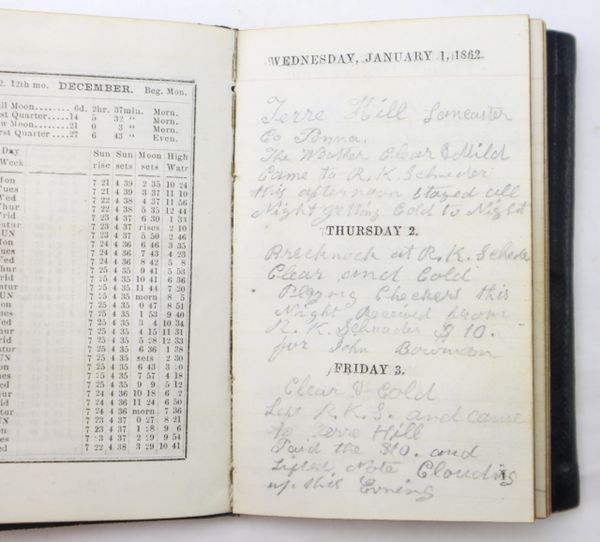 2. 12th mo. DECEMBER. Beg. Mon.
ll Moon...... 6d. 2hr. 37min. Morn.
st Quarter.....14 5 32 " Morn.
w Moon.......21 0 3 " Morn.
rst Quarter....27 6 43 " Even.
Day Sun Sun Moon High
Week rise sets sets Watr
on 7 21 4 39 2 35 10 24
ues 7 21 4 39 3 37 11 10
Wed 7 22 4 38 4 37 11 56
hur 7 22 4 38 5 35 12 44
rid 7 23 4 37 6 30 1 31
atur 7 23 4 37 rises 2 10
UN 7 23 4 37 5 50 2 46
on 7 24 4 36 6 46 3 35
ues 7 24 4 36 7 43 4 23
ed 7 24 4 36 8 42 5 8
hur 7 25 4 35 9 41 5 53
rid 7 25 4 35 10 41 6 36
atur 7 25 4 35 11 44 7 20
UN 7 25 4 35 morn 8 5
on 7 25 4 35 0 47 8 51
ues 7 25 4 35 1 53 9 40
Wed 7 25 4 35 3 4 10 34
hur 7 25 4 35 4 15 11 31
rid 7 25 4 35 5 28 12 33
atur 7 25 4 35 6 36 1 38
UN 7 25 4 35 sets 2 30
on 7 25 4 35 6 43 3 0
ues 7 25 4 35 7 57 4 18
ed 7 25 4 35 9 9 5 12
hur 7 24 4 36 10 18 6 2
rid 7 24 4 36 morn 7 36
atur 7 23 4 37 0 27 8 21
UN 7 23 4 37 1 28 9 6
on 7 23 4 37 2 29 9 54
ues 7 22 4 38 3 29 10 41
WEDNESDAY, JANUARY 1, 1862.
Terre Hill Lancaster
Co Penna.
The Weather Clear & Mild
Came to R. K. Schneder
this afternoon stayed all
Night getting Cold to Night
THURSDAY 2.
at R. K. Schneder
Clear and Cold
Playing Checkers this
Night Received from
R. K. Schnader $10.
for John Bowman
FRIDAY 3.
Clear & Cold
Left R. K. S. and came
to Terre Hill
Paid the $10. and
Lifted Note Clouding
up this Evning